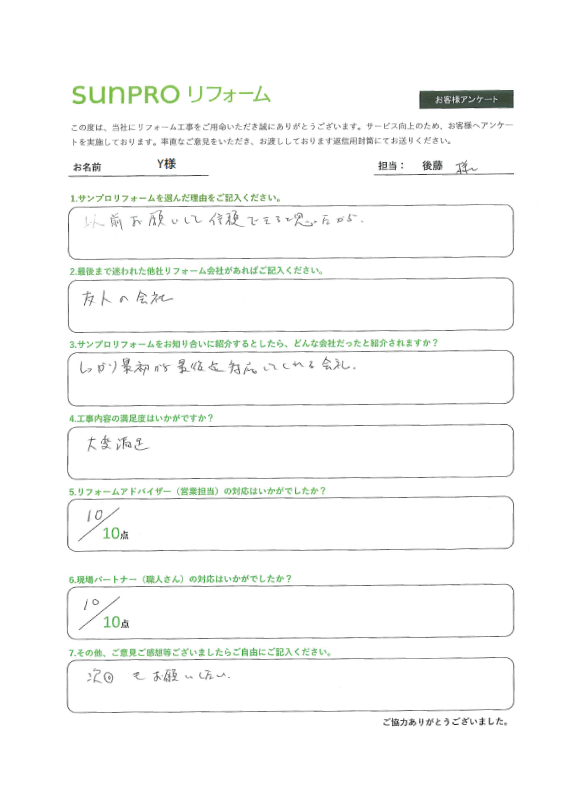 sunpro リフォーム
お客様アンケート
この度は、当社にリフォーム工事をご用命いただき誠にありがとうございます。サービス向上のため、お客様へアンケー
トを実施しております。率直なご意見をいただき、お渡ししております返信用封筒にてお送りください。
お名前 Y様 担当： 後藤 様
1.サンプロリフォームを選んだ理由をご記入ください。
以前お願いして信頼できると思ったから.
2.最後まで迷われた他社リフォーム会社があればご記入ください。
友人の会社
3.サンプロリフォームをお知り合いに紹介するとしたら、どんな会社だったと紹介されますか？
しっかり最初から最後迄対応してくれる会社.
4.工事内容の満足度はいかがですか？
大変満足
5.リフォームアドバイザー（営業担当）の対応はいかがでしたか？
10
10点
6.現場パートナー（職人さん）の対応はいかがでしたか？
10
10点
7.その他、ご意見ご感想等ございましたらご自由にご記入ください。
次回もお願いしたい.
ご協力ありがとうございました。